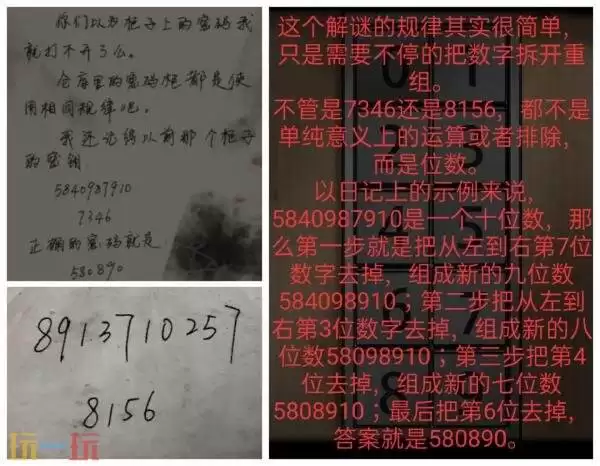 你们以为柜子上的密码我
就打不开了么。
仓库里的密码柜都是使
用相同规律吧。
我还记得以前那个柜子
的密钥
5840987910
7346
正确的密码就是
580890
8913710257
8156
这个解谜的规律其实很简单，
只是需要不停的把数字拆开重
组。
不管是7346还是8156，都不是
单纯意义上的运算或者排除，
而是位数。
以日记上的示例来说，
5840987910是一个十位数，那
么第一步就是把从左到右第7位
数字去掉，组成新的九位数
584098910；第二步把从左到
右第3位数字去掉，组成新的八
位数58098910；第三步把第4
位去掉，组成新的七位数
5808910；最后把第6位去掉，
答案就是580890。
0
1
2
3
4
5
7
8
玩一玩